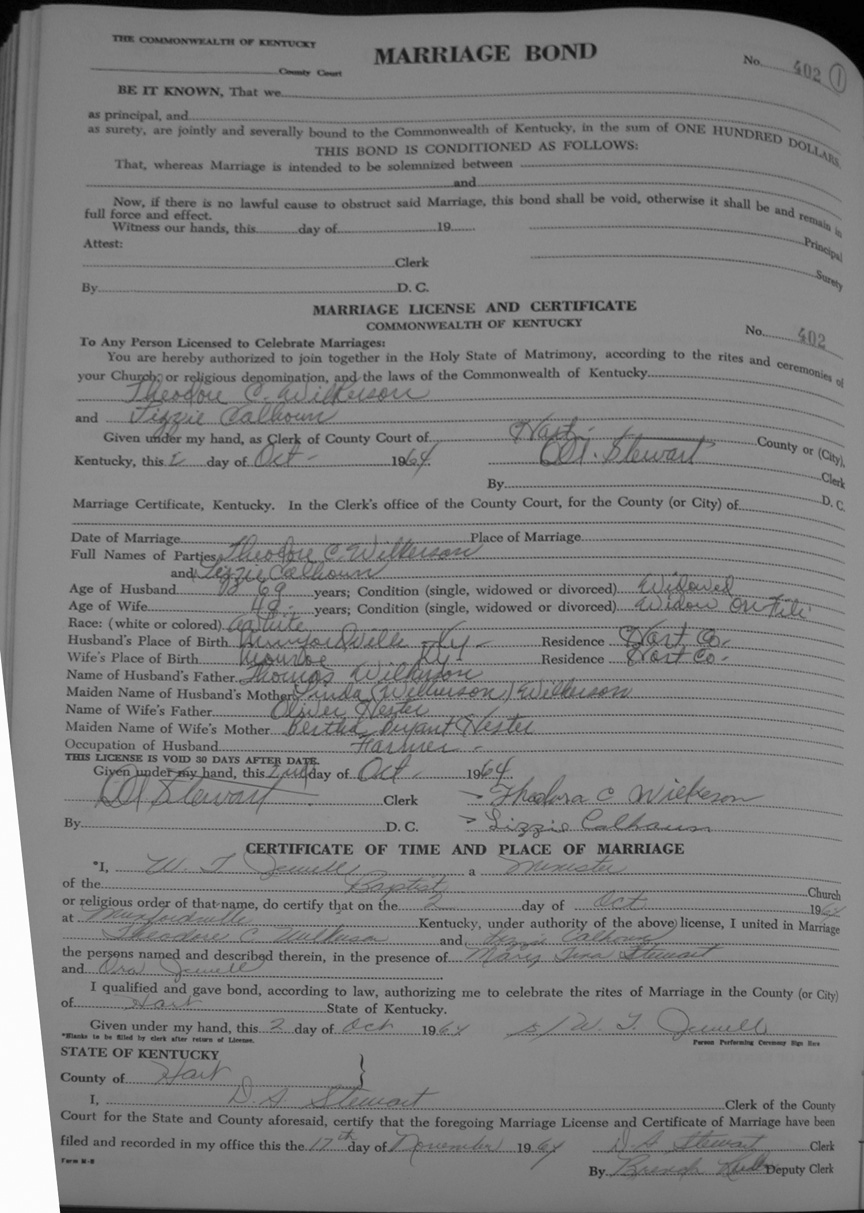 THE COMMONWEALTH OF KENTUCKY
MARRIAGE BOND
No. 402 1
County Court
BE IT KNOWN, That we
as principal, and
as surety, are jointly and severally bound to the Commonwealth of Kentucky, in the sum of ONE HUNDRED DOLLARS.
THIS BOND IS CONDITIONED AS FOLLOWS:
That, whereas Marriage is intended to be solemnized between
and
Now, if there is no lawful cause to obstruct said Marriage, this bond shall be void, otherwise it shall be and remain in
full force and effect.
Witness our hands, this day of 19
Principal
Attest:
Clerk
Surety
By D. C.
MARRIAGE LICENSE AND CERTIFICATE
COMMONWEALTH OF KENTUCKY
No. 402
To Any Person Licensed to Celebrate Marriages:
You are hereby authorized to join together in the Holy State of Matrimony, according to the rites and ceremonies of
your Church, or religious denomination, and the laws of the Commonwealth of Kentucky
Theodore C. Wilkerson
and Lizzie Calhoun
Given under my hand, as Clerk of County Court of Hart County or (City),
Kentucky, this 2 day of Oct - 1964. Stewart Clerk
By D. C.
Marriage Certificate, Kentucky. In the Clerk's office of the County Court, for the County (or City) of
Date of Marriage Place of Marriage
Full Names of Parties Theodore C. Wilkerson
and Lizzie Calhoun
Age of Husband 69 years; Condition (single, widowed or divorced) Widowed
Age of Wife 49 years; Condition (single, widowed or divorced) Widow on File
Race: (white or colored) White
Husband's Place of Birth Munfordville Ky - Residence Hart Co -
Wife's Place of Birth Monroe Ky - Residence Hart Co -
Name of Husband's Father Thomas Wilkerson
Maiden Name of Husband's Mother Linda (Wilkerson) Wilkerson
Name of Wife's Father Oliver Hester
Maiden Name of Wife's Mother Bertha Bryant Hester
Occupation of Husband Farmer -
THIS LICENSE IS VOID 30 DAYS AFTER DATE.
Given under my hand, this 2nd day of Oct - 1964.
Stewart Clerk Theodora C Wilkerson
By D. C. Lizzie Calhoun
CERTIFICATE OF TIME AND PLACE OF MARRIAGE
*I, W. T. Jewell a Minister
of the Baptist Church
or religious order of that name, do certify that on the 2 day of Oct 1964
at Munfordville Kentucky, under authority of the above license, I united in Marriage
Theodore C Wilkerson and Lizzie Calhoun
the persons named and described therein, in the presence of Mary Stewart
and Ora Jewell
I qualified and gave bond, according to law, authorizing me to celebrate the rites of Marriage in the County (or City)
of Hart State of Kentucky.
Given under my hand, this 2 day of Oct 1964 s/ W. T. Jewell
*Blanks to be filled by clerk after return of License. Person Performing Ceremony Sign Here
STATE OF KENTUCKY
County of Hart
I, D. A. Stewart Clerk of the County
Court for the State and County aforesaid, certify that the foregoing Marriage License and Certificate of Marriage have been
filed and recorded in my office this the 17th day of November 1964 D. A. Stewart Clerk
Form M-B
By Deputy Clerk